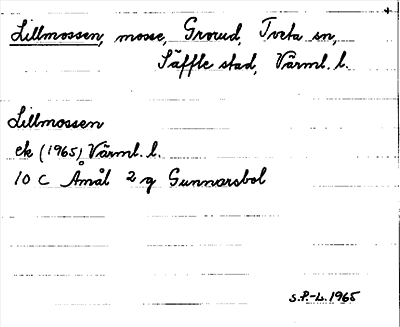 Lillmossen, mosse, Grorud, Tveta sn,
Säffle stad, Värml. l.
Lillmossen
ek (1965) Värml. l.
10 C Åmål 2 g Gunnarsbol
S.P.-L. 1965